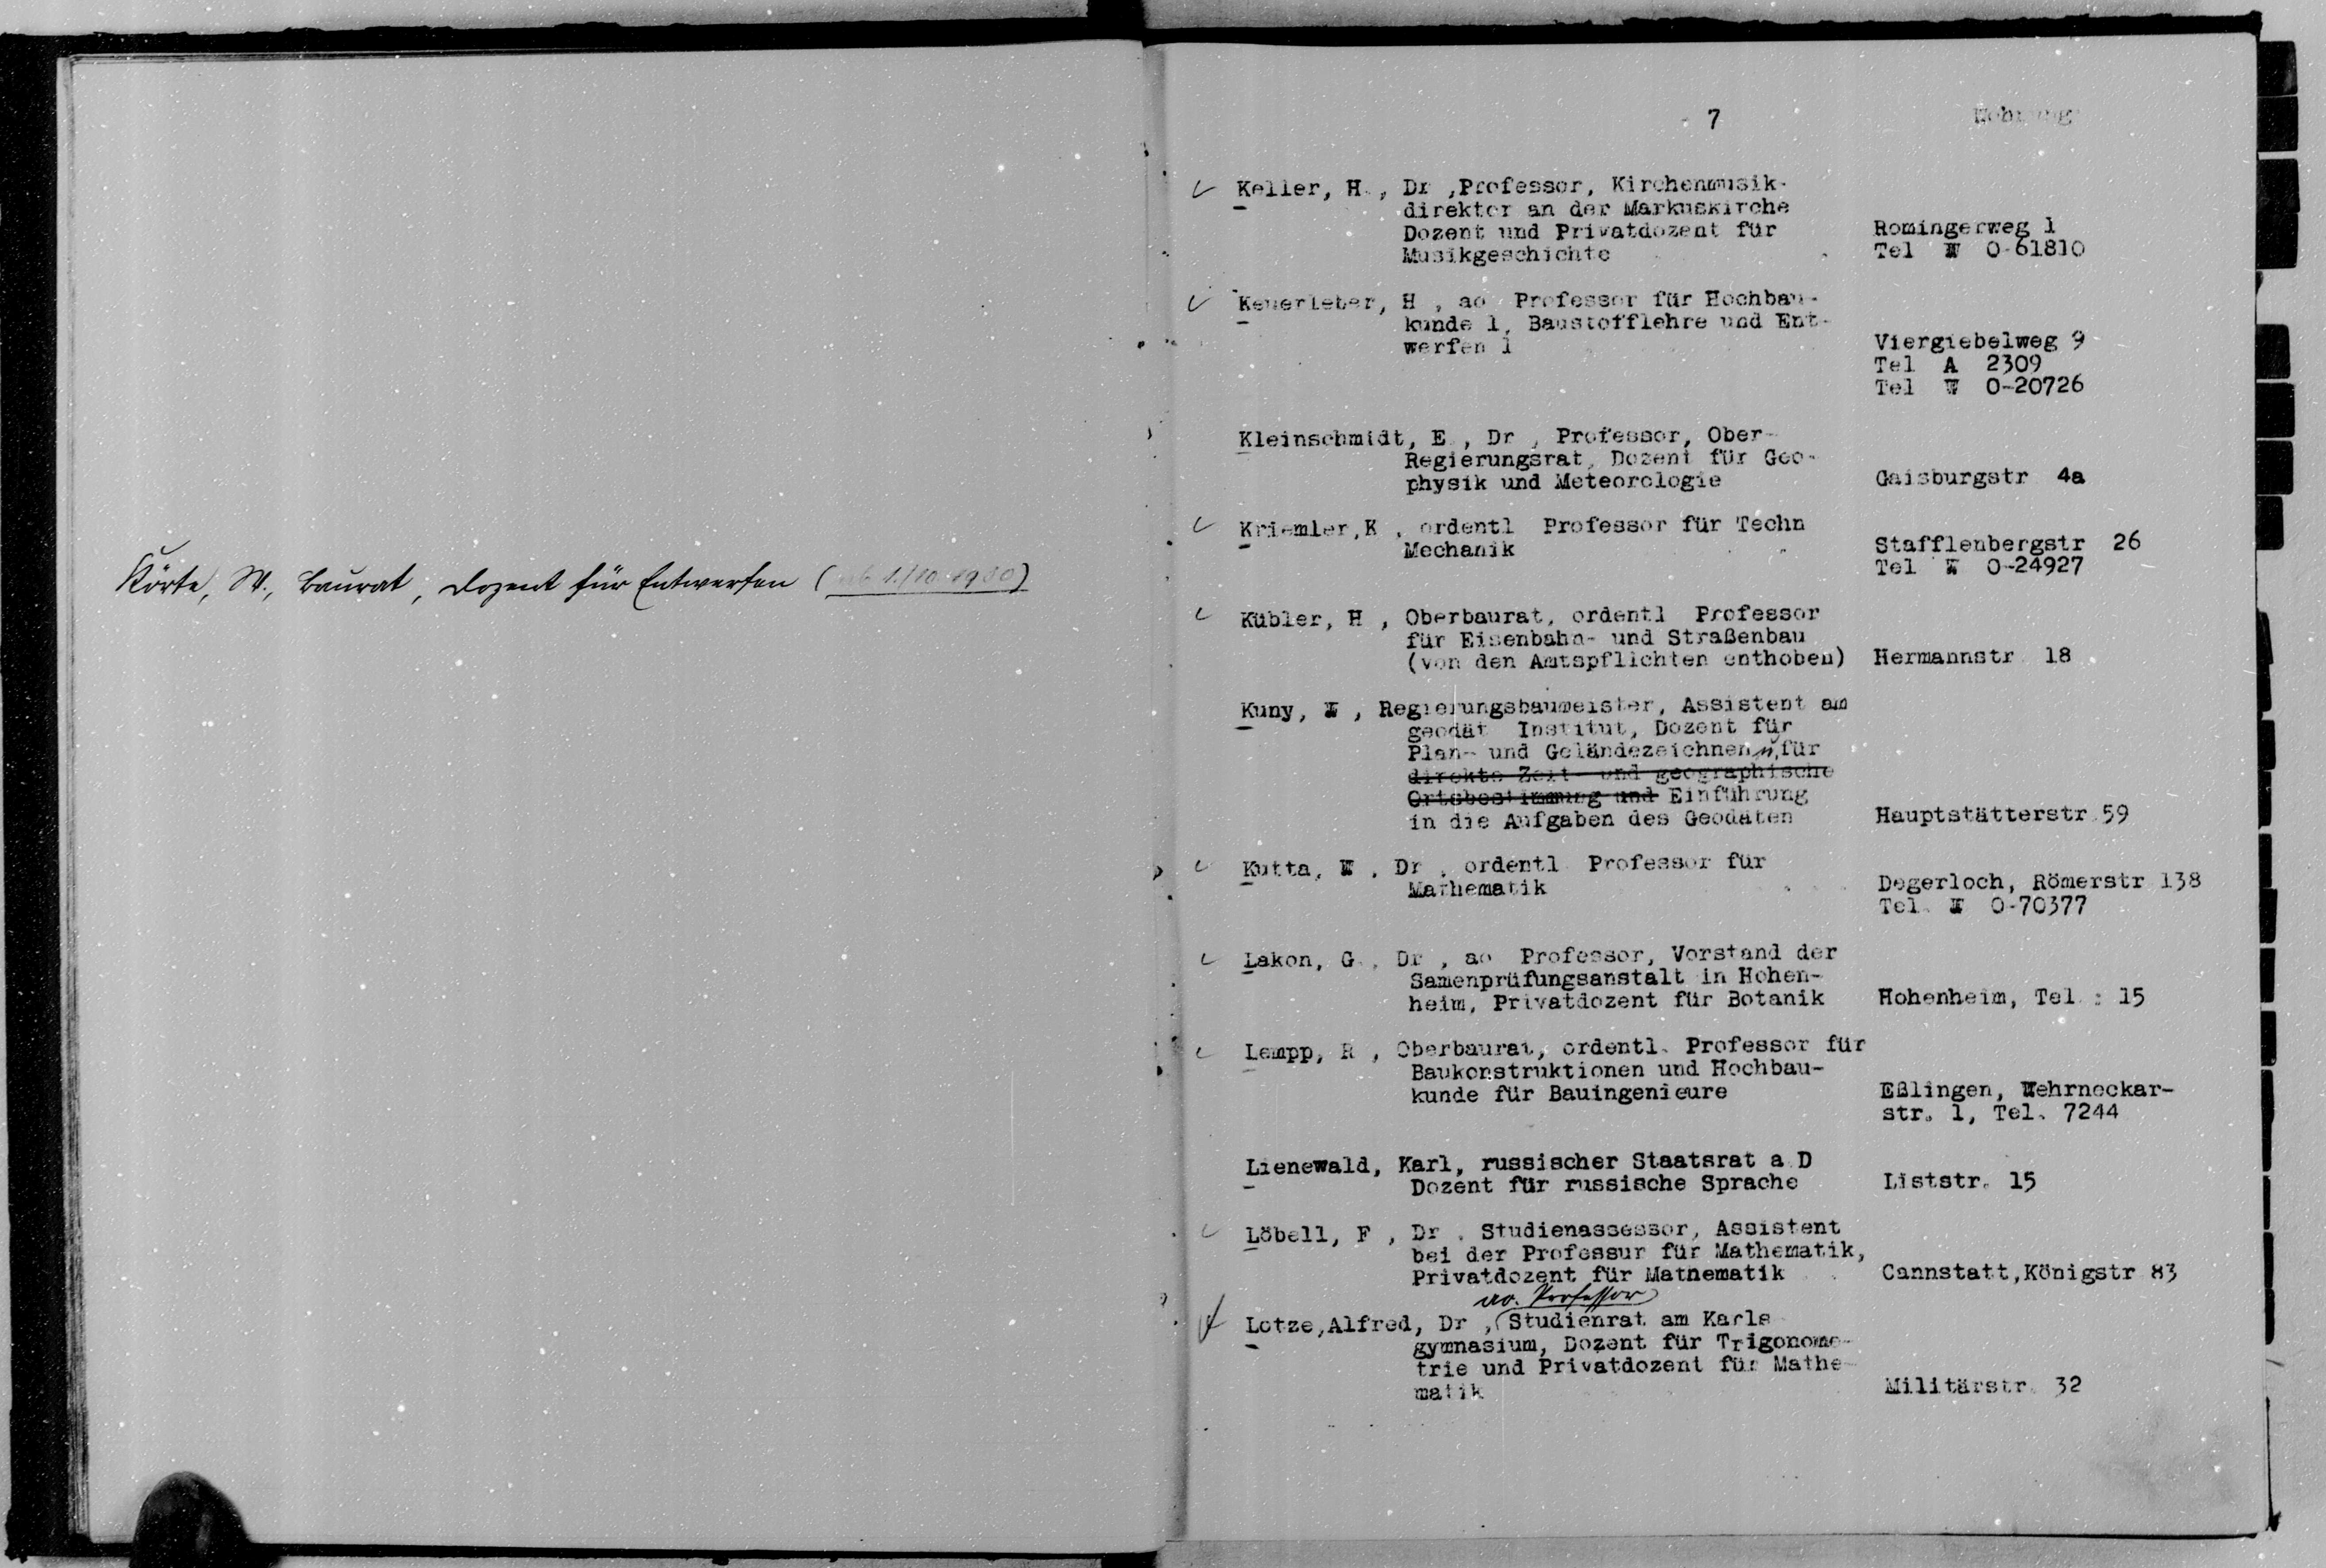 Körte, W., Baurat, Dozent für Entwerfen (ab 1./10. 1930)
7
Wohnung
Keller, H., Dr ,Professor, Kirchenmusik-
direktor an der Markuskirche
Dozent und Privatdozent für
Musikgeschichte
Romingerweg 1
Tel W 0-61810
Keuerleber, H , ao Professor für Hochbau-
kunde 1, Baustofflehre und Ent-
werfen 1
Viergiebelweg 9
Tel A 2309
Tel W 0-20726
Kleinschmidt, E., Dr , Professor, Ober-
Regierungsrat, Dozent für Geo-
physik und Meteorologie
Gaisburgstr 4a
Kriemler,K , ordentl Professor für Techn
Mechanik
Stafflenbergstr 26
Tel W 0-24927
Kübler, H , Oberbaurat, ordentl Professor
für Eisenbahn- und Straßenbau
(von den Amtspflichten enthoben) Hermannstr 18
Kuny, W , Regierungsbaumeister, Assistent am
geodät Institut, Dozent für
Plan- und Geländezeichnen u. für
direkte Zeit- und geographische
Ortsbestimmung und Einführung
in die Aufgaben des Geodäten
Hauptstätterstr.59
Kutta, W , Dr , ordentl Professor für
Mathematik
Degerloch, Römerstr 138
Tel. W 0-70377
Lakon, G., Dr , ao Professor, Vorstand der
Samenprüfungsanstalt in Hohen-
heim, Privatdozent für Botanik
Hohenheim, Tel.: 15
Lempp, R , Oberbaurat, ordentl. Professor für
Baukonstruktionen und Hochbau-
kunde für Bauingenieure
Eßlingen, Wehrneckar-
str. 1, Tel. 7244
Lienewald, Karl, russischer Staatsrat a.D
Dozent für russische Sprache
Liststr. 15
Löbell, F , Dr . Studienassessor, Assistent
bei der Professur für Mathematik,
Privatdozent für Mathematik
Cannstatt,Königstr 83
ao. Professor
Lotze,Alfred, Dr ,(Studienrat am Karls-
gymnasium, Dozent für Trigonome-
trie und Privatdozent für Mathe-
matik
Militärstr. 32